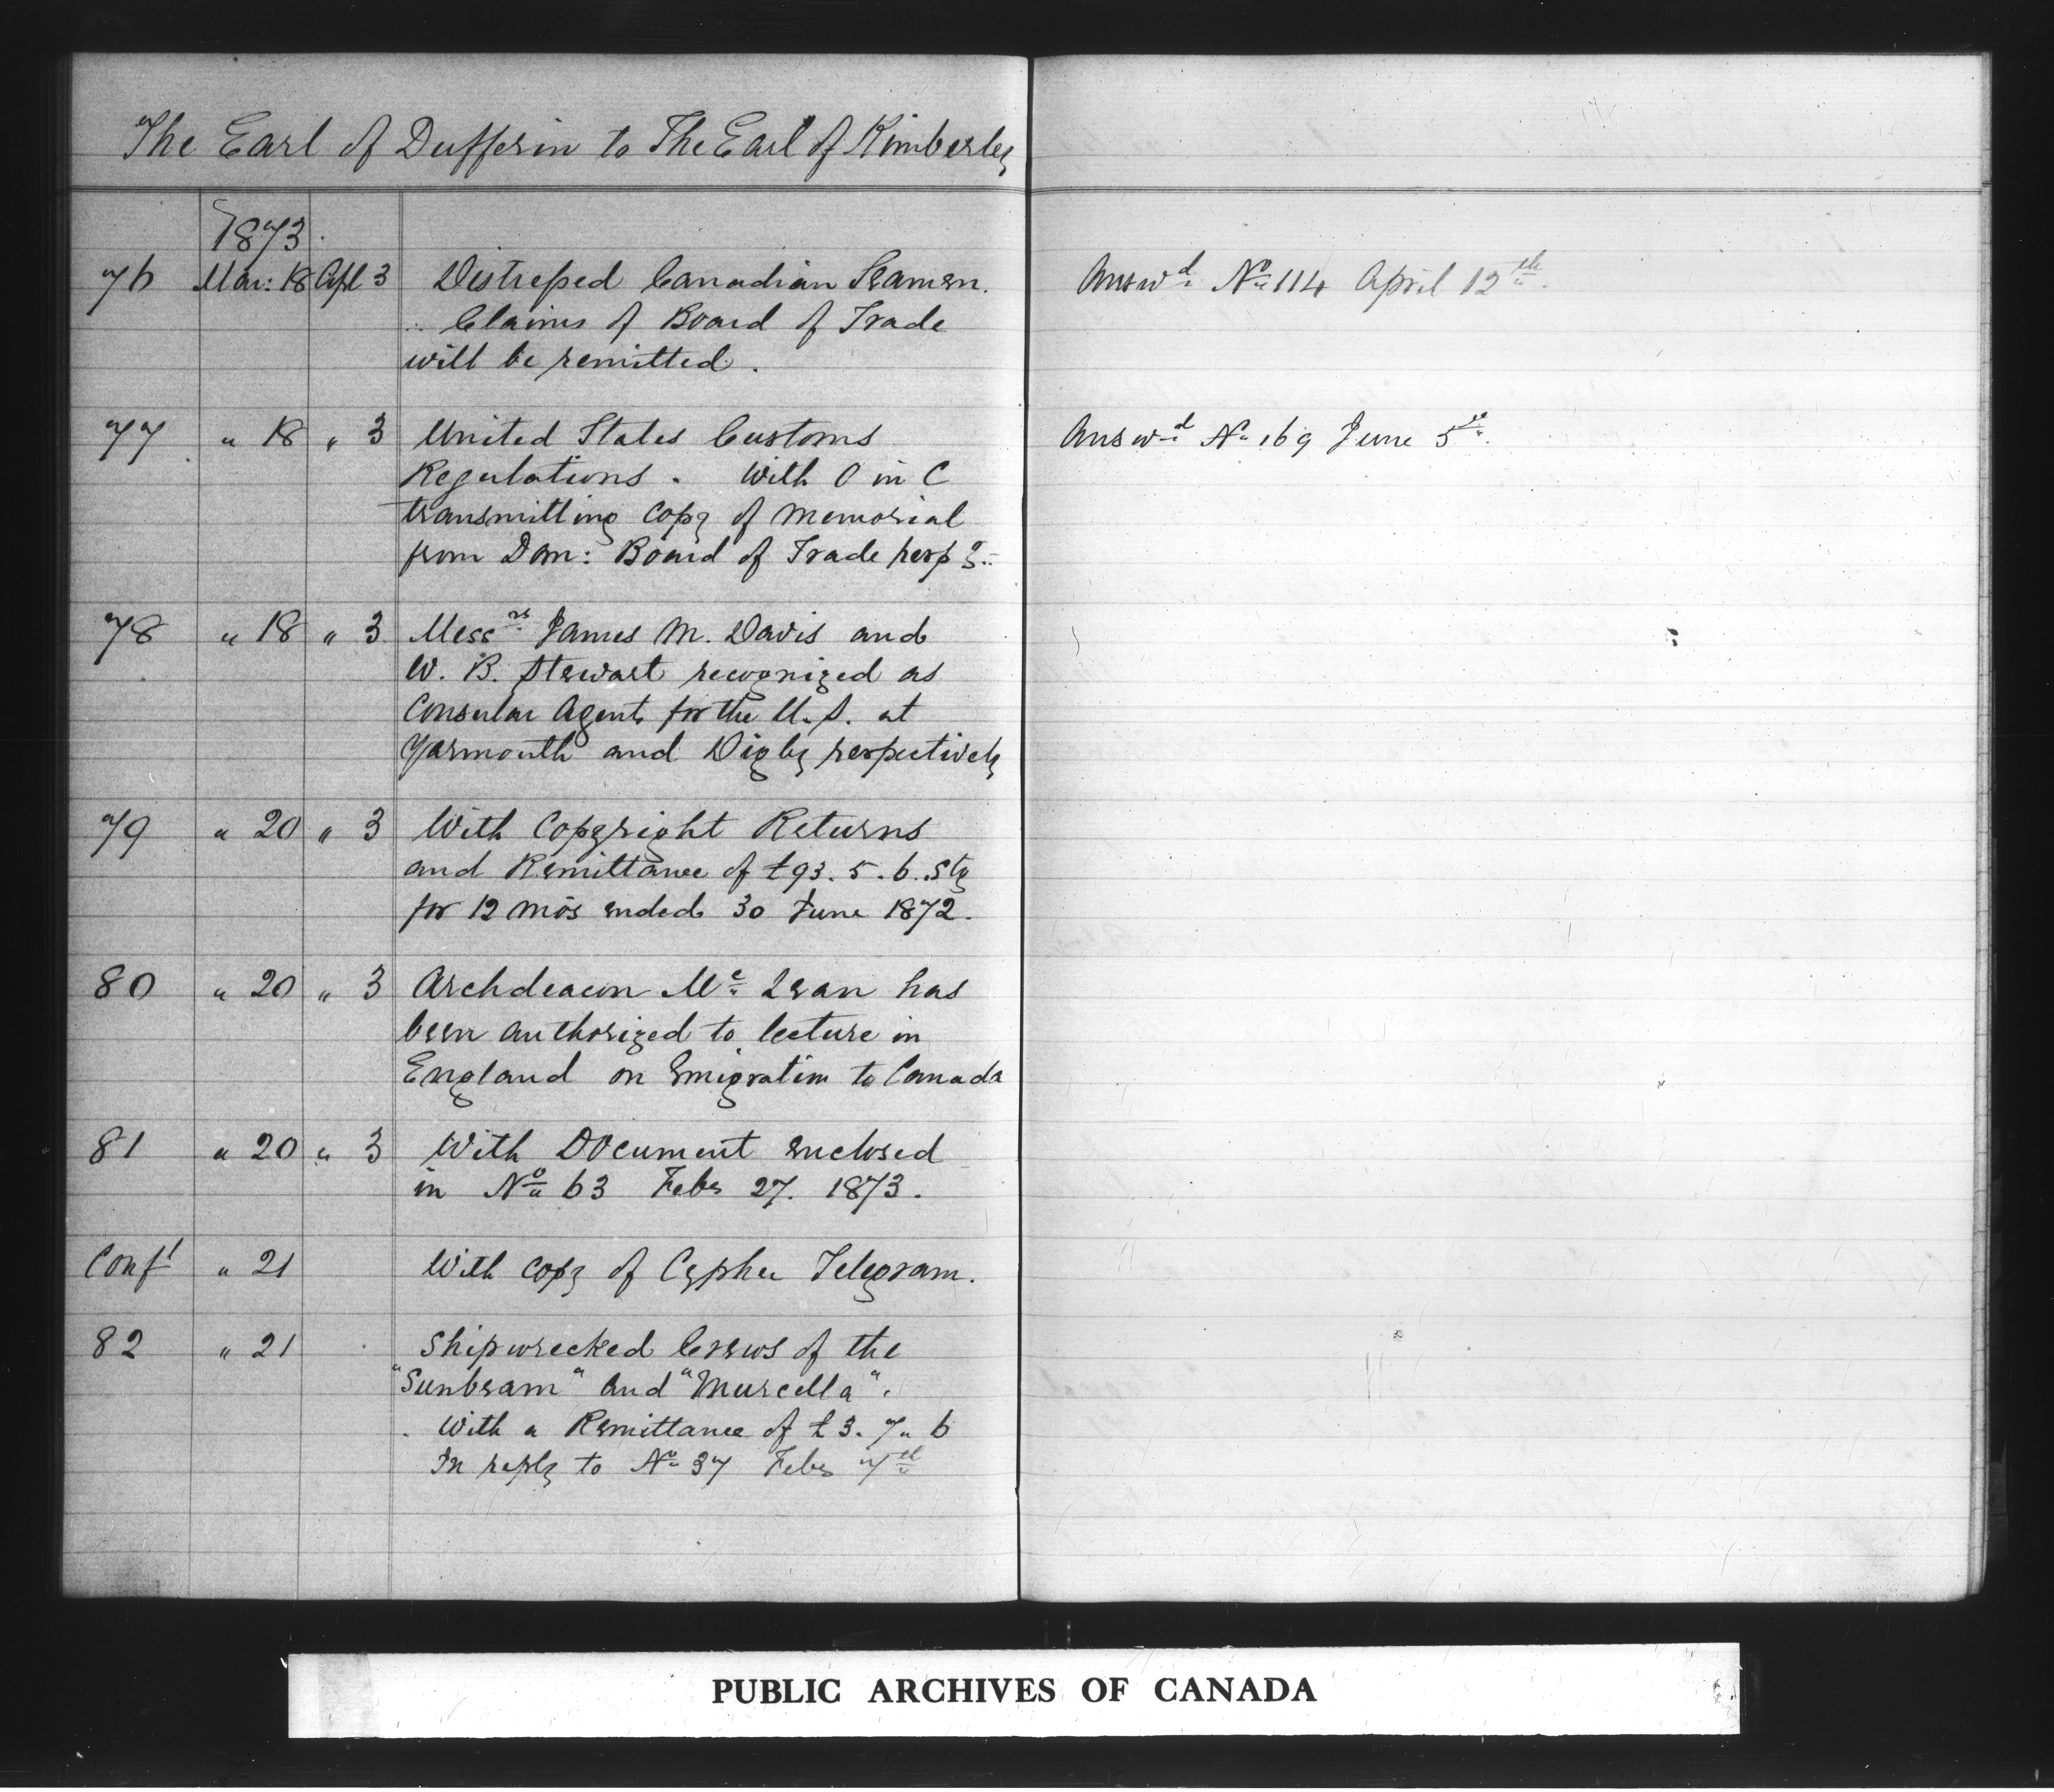 The Earl of Dufferin to The Earl of Kimberley
1873
76 Mar: 18 Apl 3 Distressed Canadian Seamen. Answd No 114 April 12th.
Claims of Board of Trade
will be remitted.
77 " 18 " 3 United States Customs Answd No 169 June 5th.
Regulations. With O in C
transmitting copy of memorial
from Dom: Board of Trade respg.
78 " 18 " 3 Messrs James M. Davis and
W. B. Stewart recognized as
Consular Agents for the U.S. at
Yarmouth and Digby respectively
79 " 20 " 3 With Copyright Returns
and Remittance of £93.5.6. Stg
for 12 mos ended 30 June 1872.
80 " 20 " 3 Archdeacon Mc Lean has
been authorized to lecture in
England on Emigration to Canada
81 " 20 " 3 With Document enclosed
in No 63 Feby 27. 1873.
Confl " 21 With copy of Cypher Telegram.
82 " 21 Shipwrecked Crews of the
"Sunbeam" and "Murcella".
With a Remittance of £3.7.6
In reply to No 37 Feby 7th
PUBLIC ARCHIVES OF CANADA